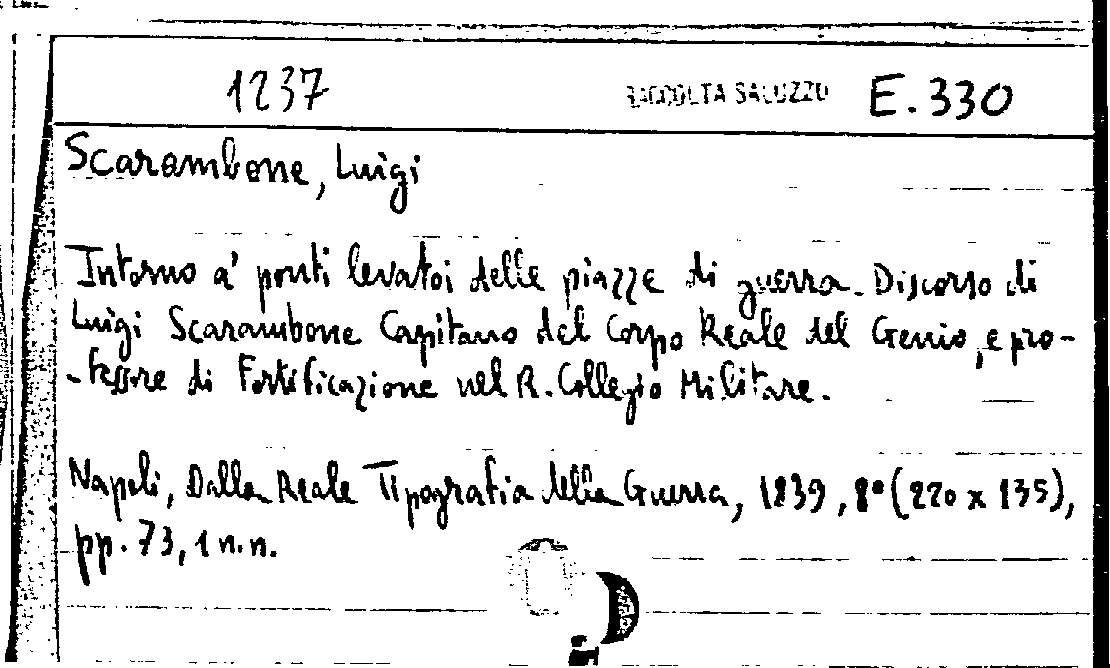 1237 RACCOLTA SALUZZO E.330
Scarambone, Luigi
Intorno a' ponti levatoi delle piazze di guerra. Discorso di
Luigi Scarambone Capitano del Corpo Reale del Genio, e pro-
-fessore di Fortificazione nel R. Collegio Militare.
Napoli, Dalla Reale Tipografia della Guerra, 1839, 8° (220 x 135),
pp. 73, 1 n.n.